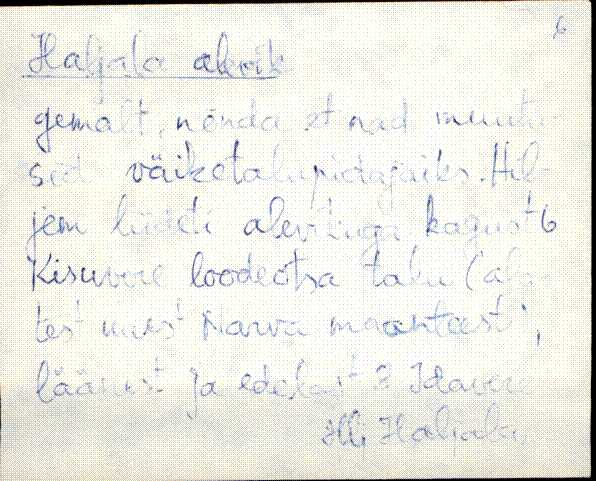 6
Haljala alevik
gemalt, nõnda et nad muutu
sid väiketalupidajaiks. Hil-
jem liideti alevikuga kagust 6
Kisuvere loodeotsa talu (al
test uuest Narva maanteest),
läänest ja edelast 2 Idavere
Haljala